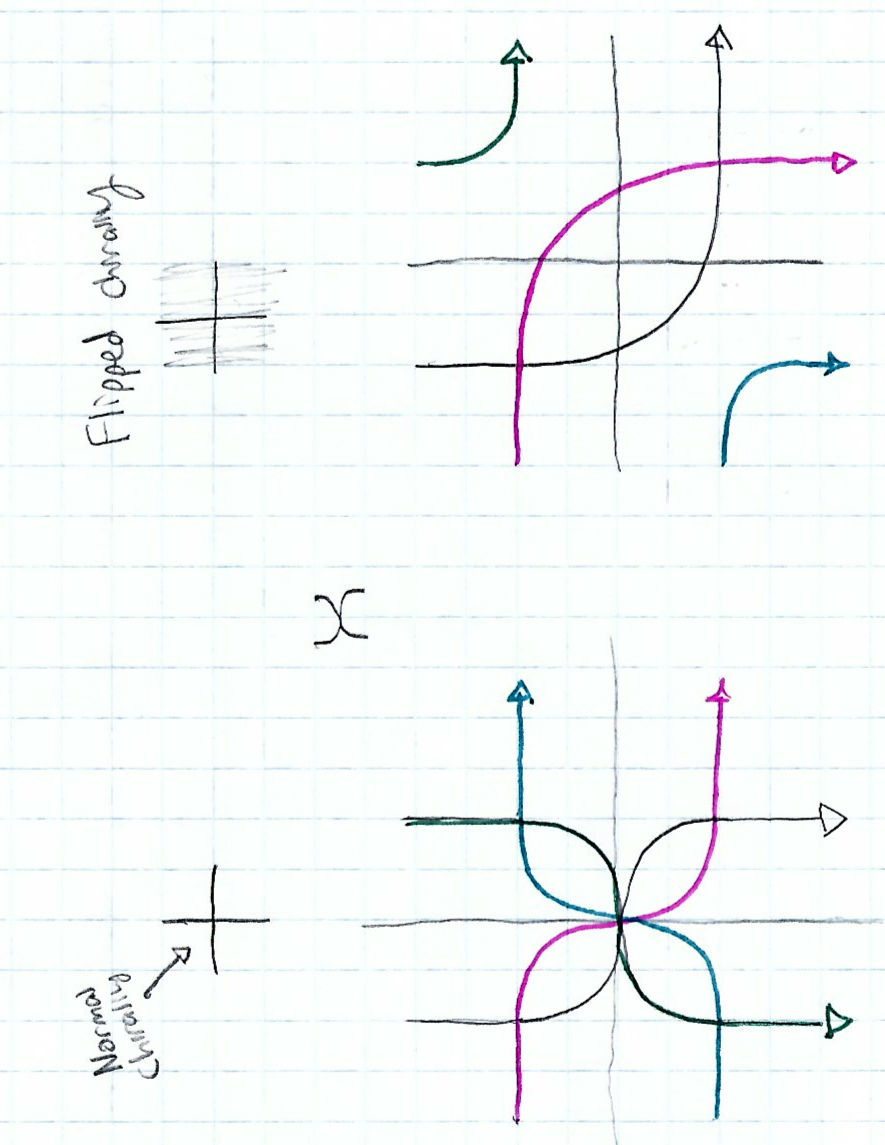 Flipped chirality
x
Normal
Chirality